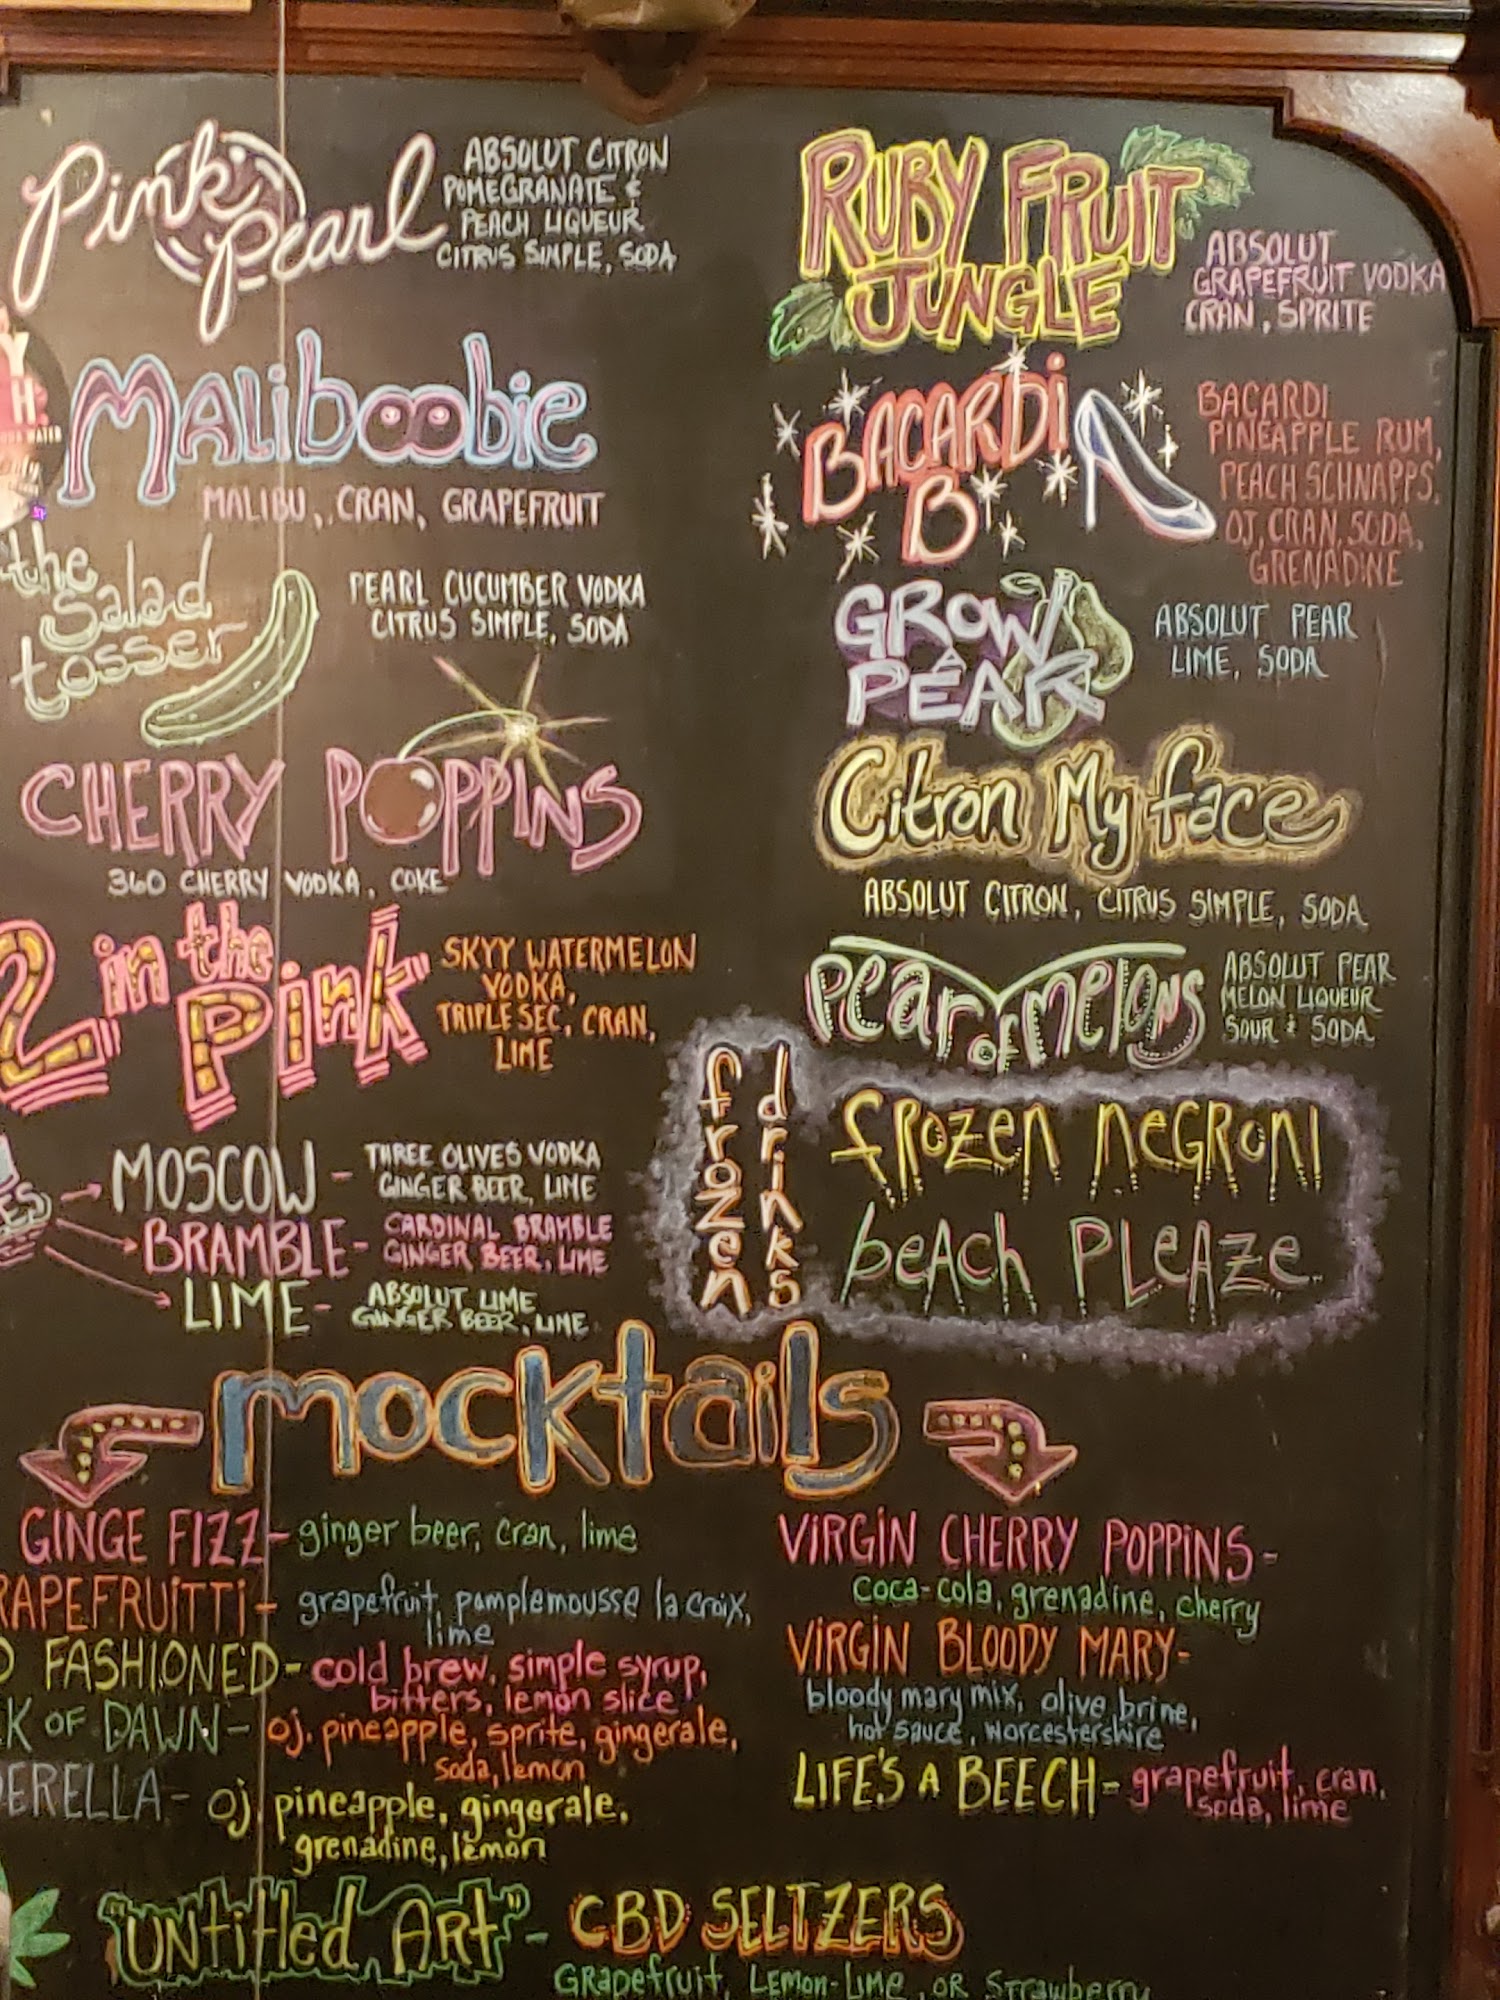 Pink Pearl
ABSOLUT CITRON
POMEGRANATE &
PEACH LIQUEUR
CITRUS SIMPLE, SODA
MALIBOOBIE
MALIBU, CRAN, GRAPEFRUIT
the
Salad
tosser
PEARL CUCUMBER VODKA
CITRUS SIMPLE, SODA
CHERRY POPPINS
360 CHERRY VODKA, COKE
2 in the
Pink
SKYY WATERMELON
VODKA,
TRIPLE SEC, CRAN,
LIME
MOSCOW - THREE OLIVES VODKA
GINGER BEER, LIME
BRAMBLE - CARDINAL BRAMBLE
GINGER BEER, LIME
LIME - ABSOLUT LIME
GINGER BEER, LIME
RUBY FRUIT
JUNGLE
ABSOLUT
GRAPEFRUIT VODKA
CRAN, SPRITE
BACARDI
B
BACARDI
PINEAPPLE RUM,
PEACH SCHNAPPS,
OJ, CRAN, SODA,
GRENADINE
GROW
A
PEAR
ABSOLUT PEAR
LIME, SODA
Citron My face
ABSOLUT CITRON, CITRUS SIMPLE, SODA
Pear of melons
ABSOLUT PEAR
MELON LIQUEUR
SOUR & SODA
frozen drinks
frozen negroni
beach pleaze
mocktails
GINGE FIZZ - ginger beer, cran, lime
RAPEFRUITTI - grapefruit, pamplemousse la croix,
lime
FASHIONED - cold brew, simple syrup,
bitters, lemon slice
K OF DAWN - oj, pineapple, sprite, gingerale,
soda, lemon
ERELLA - oj, pineapple, gingerale,
grenadine, lemon
VIRGIN CHERRY POPPINS -
coca-cola, grenadine, cherry
VIRGIN BLOODY MARY -
bloody mary mix, olive brine,
hot sauce, worcestershire
LIFE'S A BEECH - grapefruit, cran,
soda, lime
"UNtitled ARt" - CBD SELTZERS
GRapefruit, Lemon-Lime, OR Strawberry